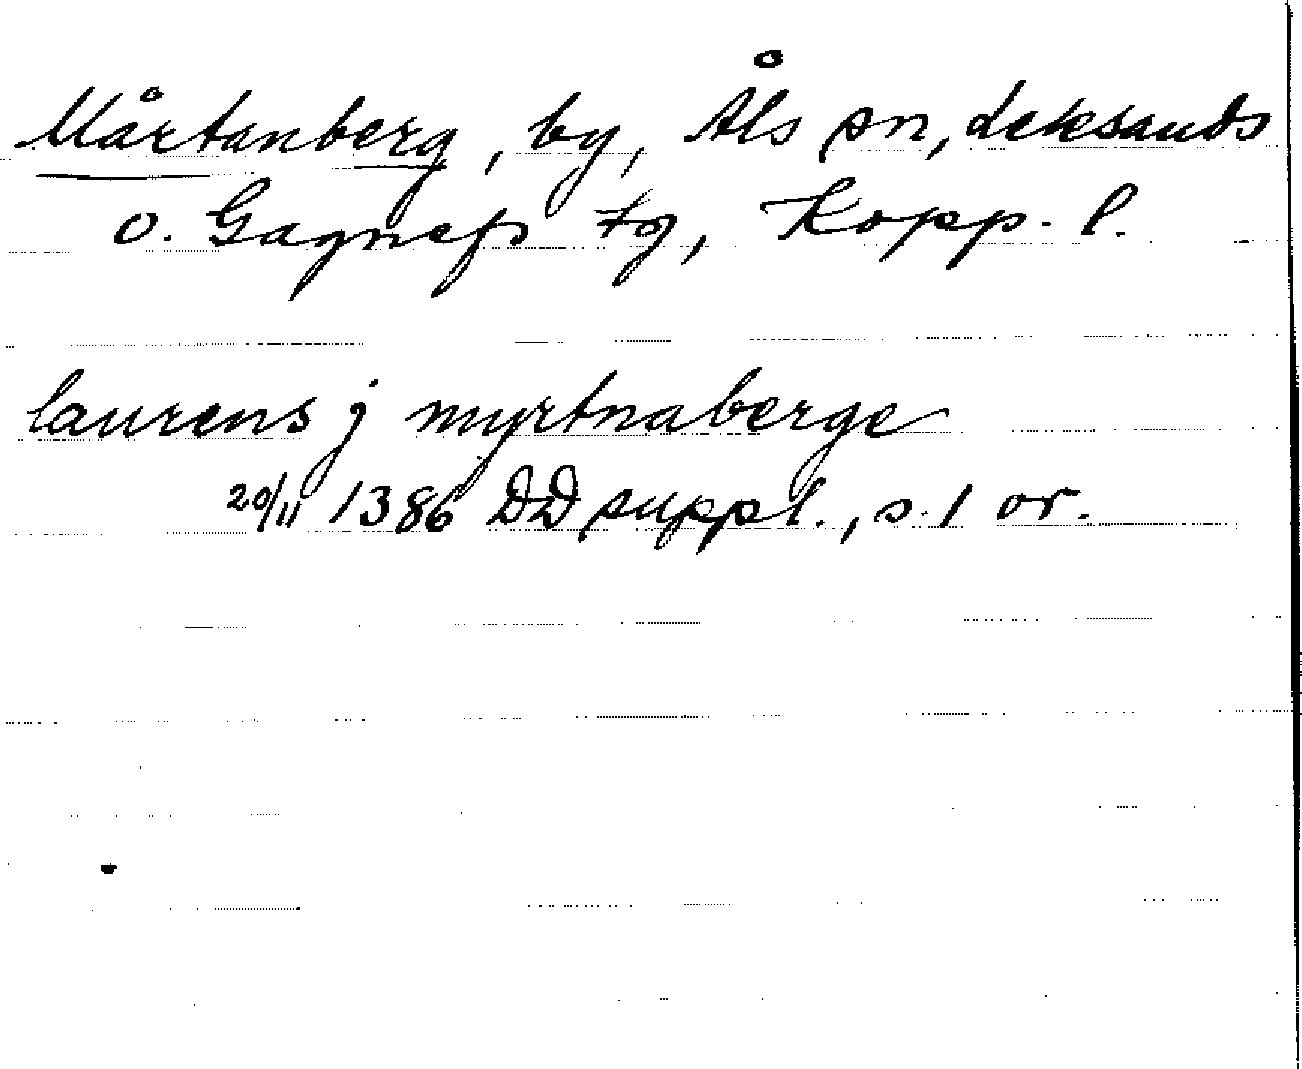 Mårtanberg, by, Åls sn, Leksands
o. Gagnefs tg, Kopp. l.
laurens j myrtnaberge
20/11 1386 DD suppl., s. 1 or.